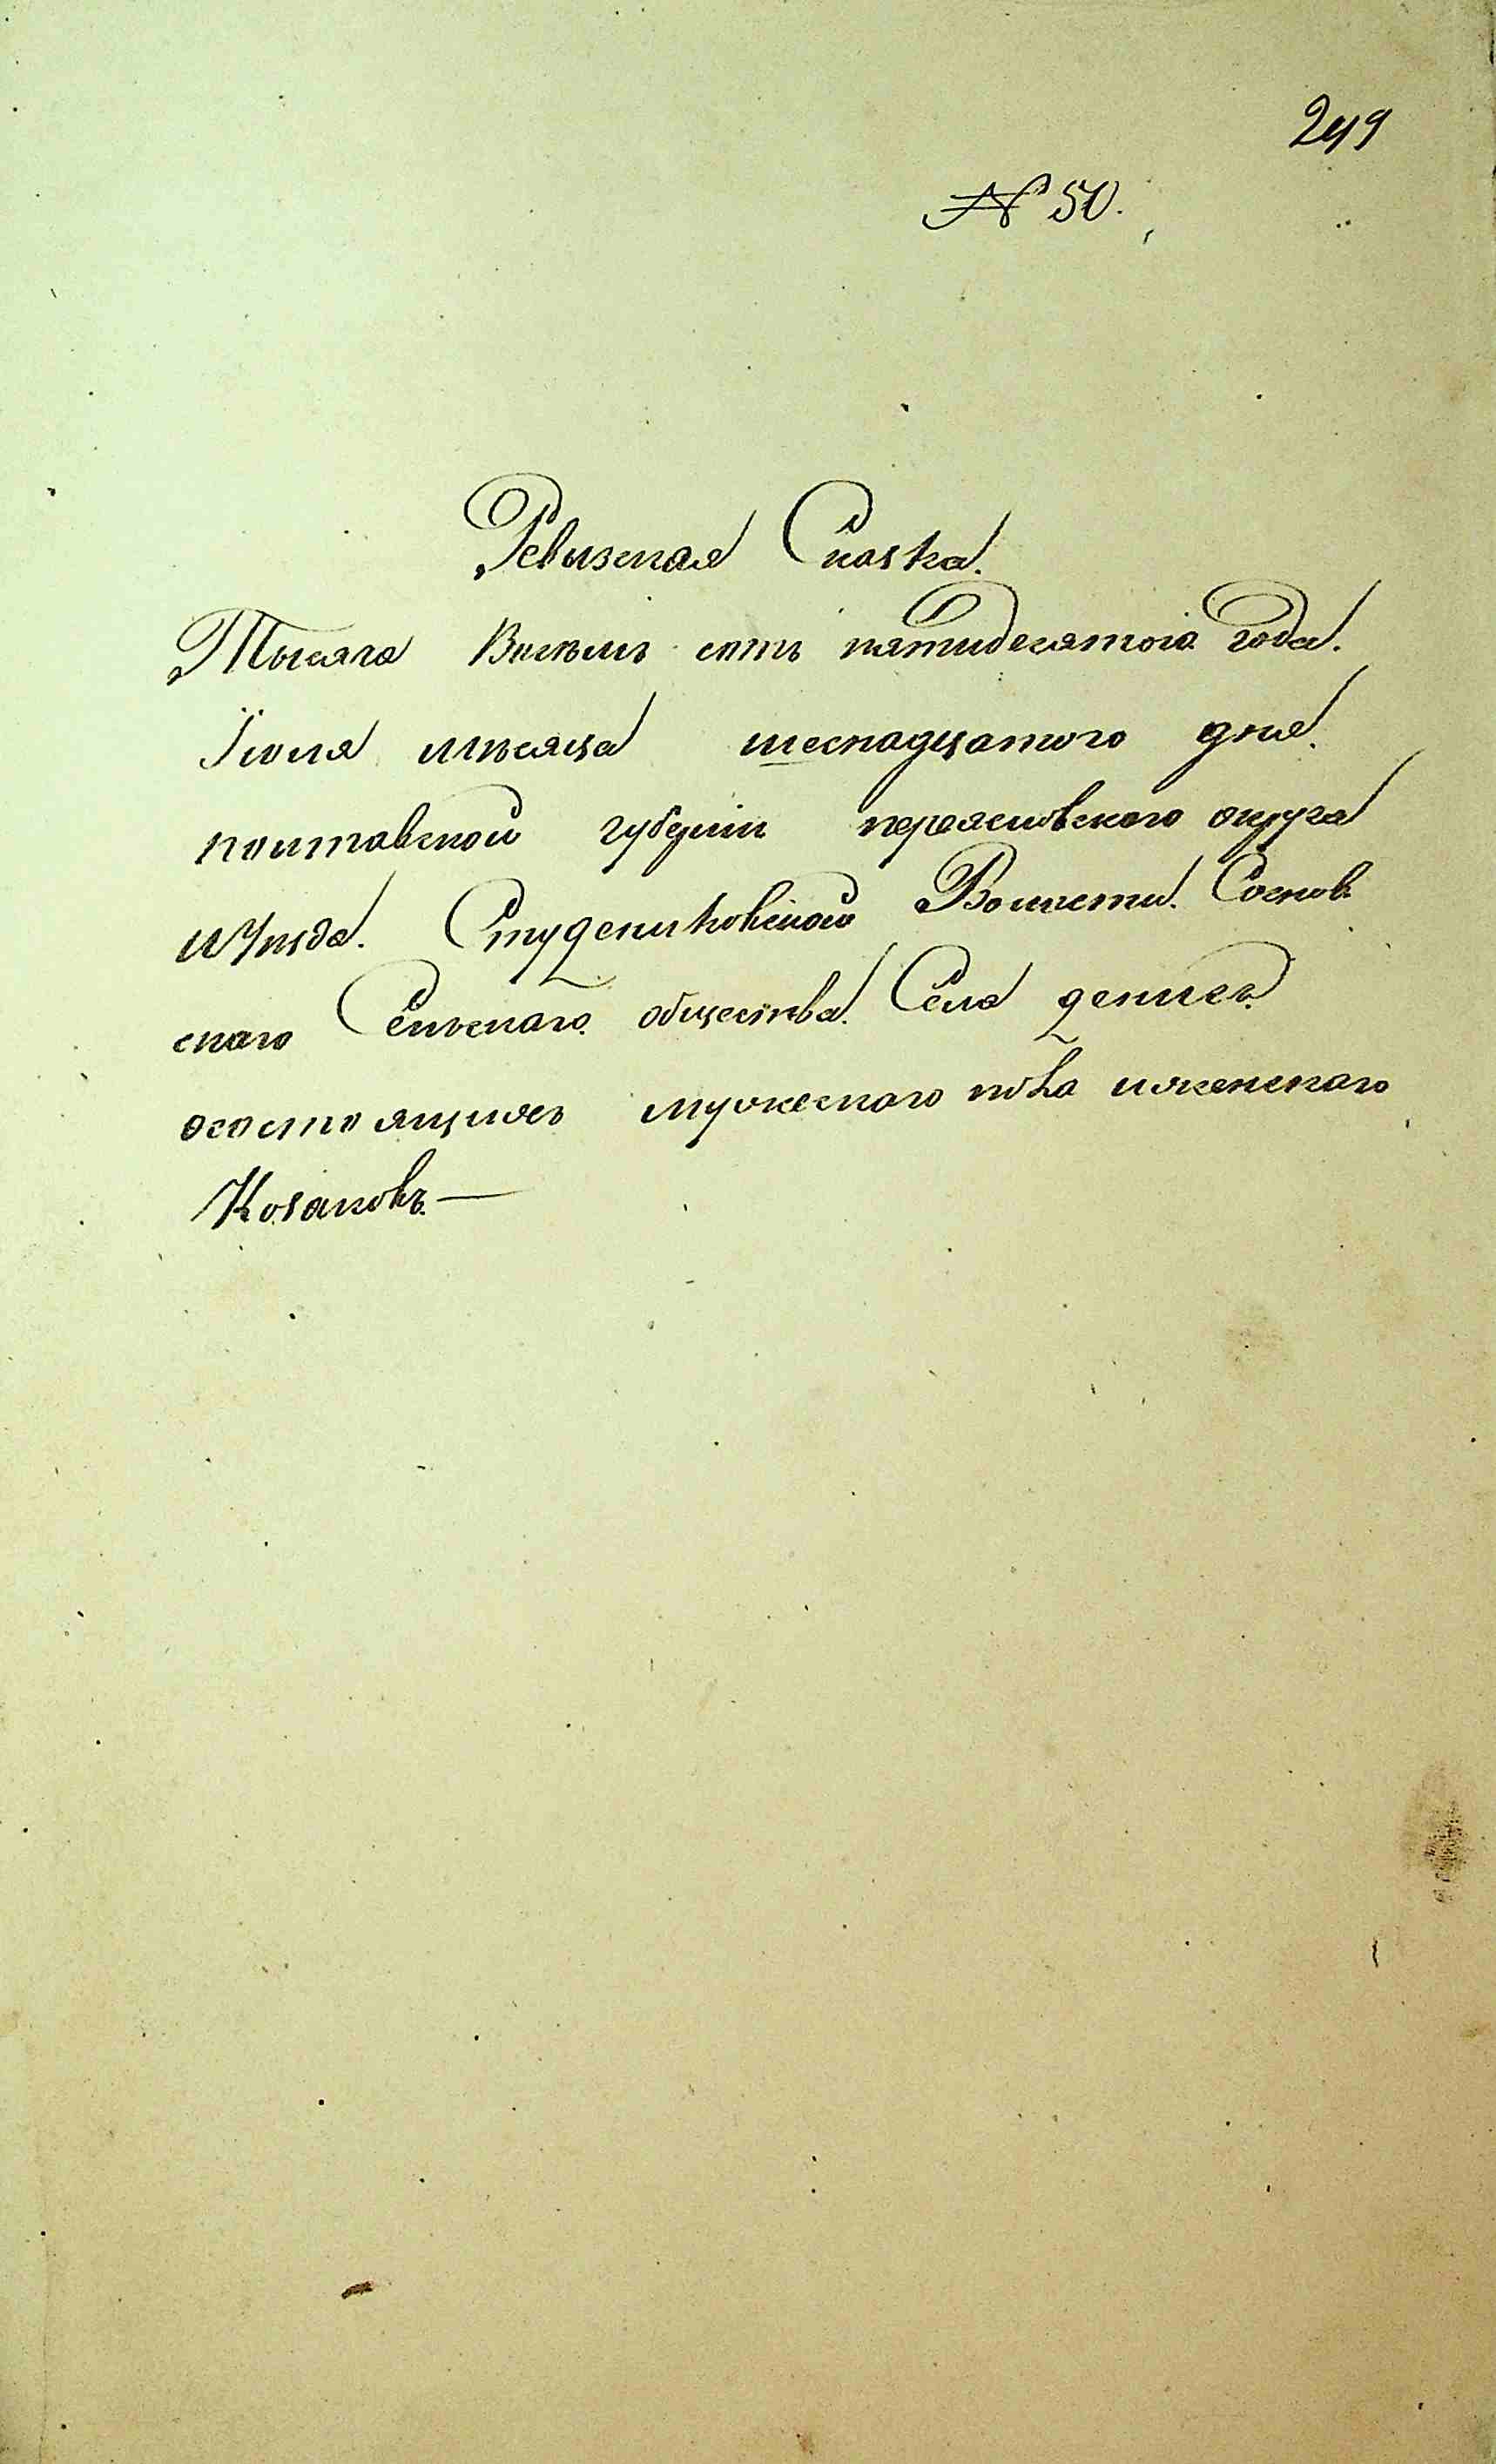 249
№ 50.
Ревизская Сказка.
Тысяча Восемь сотъ пятидесятого года.
Їюля мѣсяца шеснадцатого дня.
полтавской губерніи переясловского округа
иУѣзда. Студениковской Волости. Соснов
скаго Сельскаго общества. Села денисъ
осостоящихъ мужескаго пола иженскаго
Козаковъ —